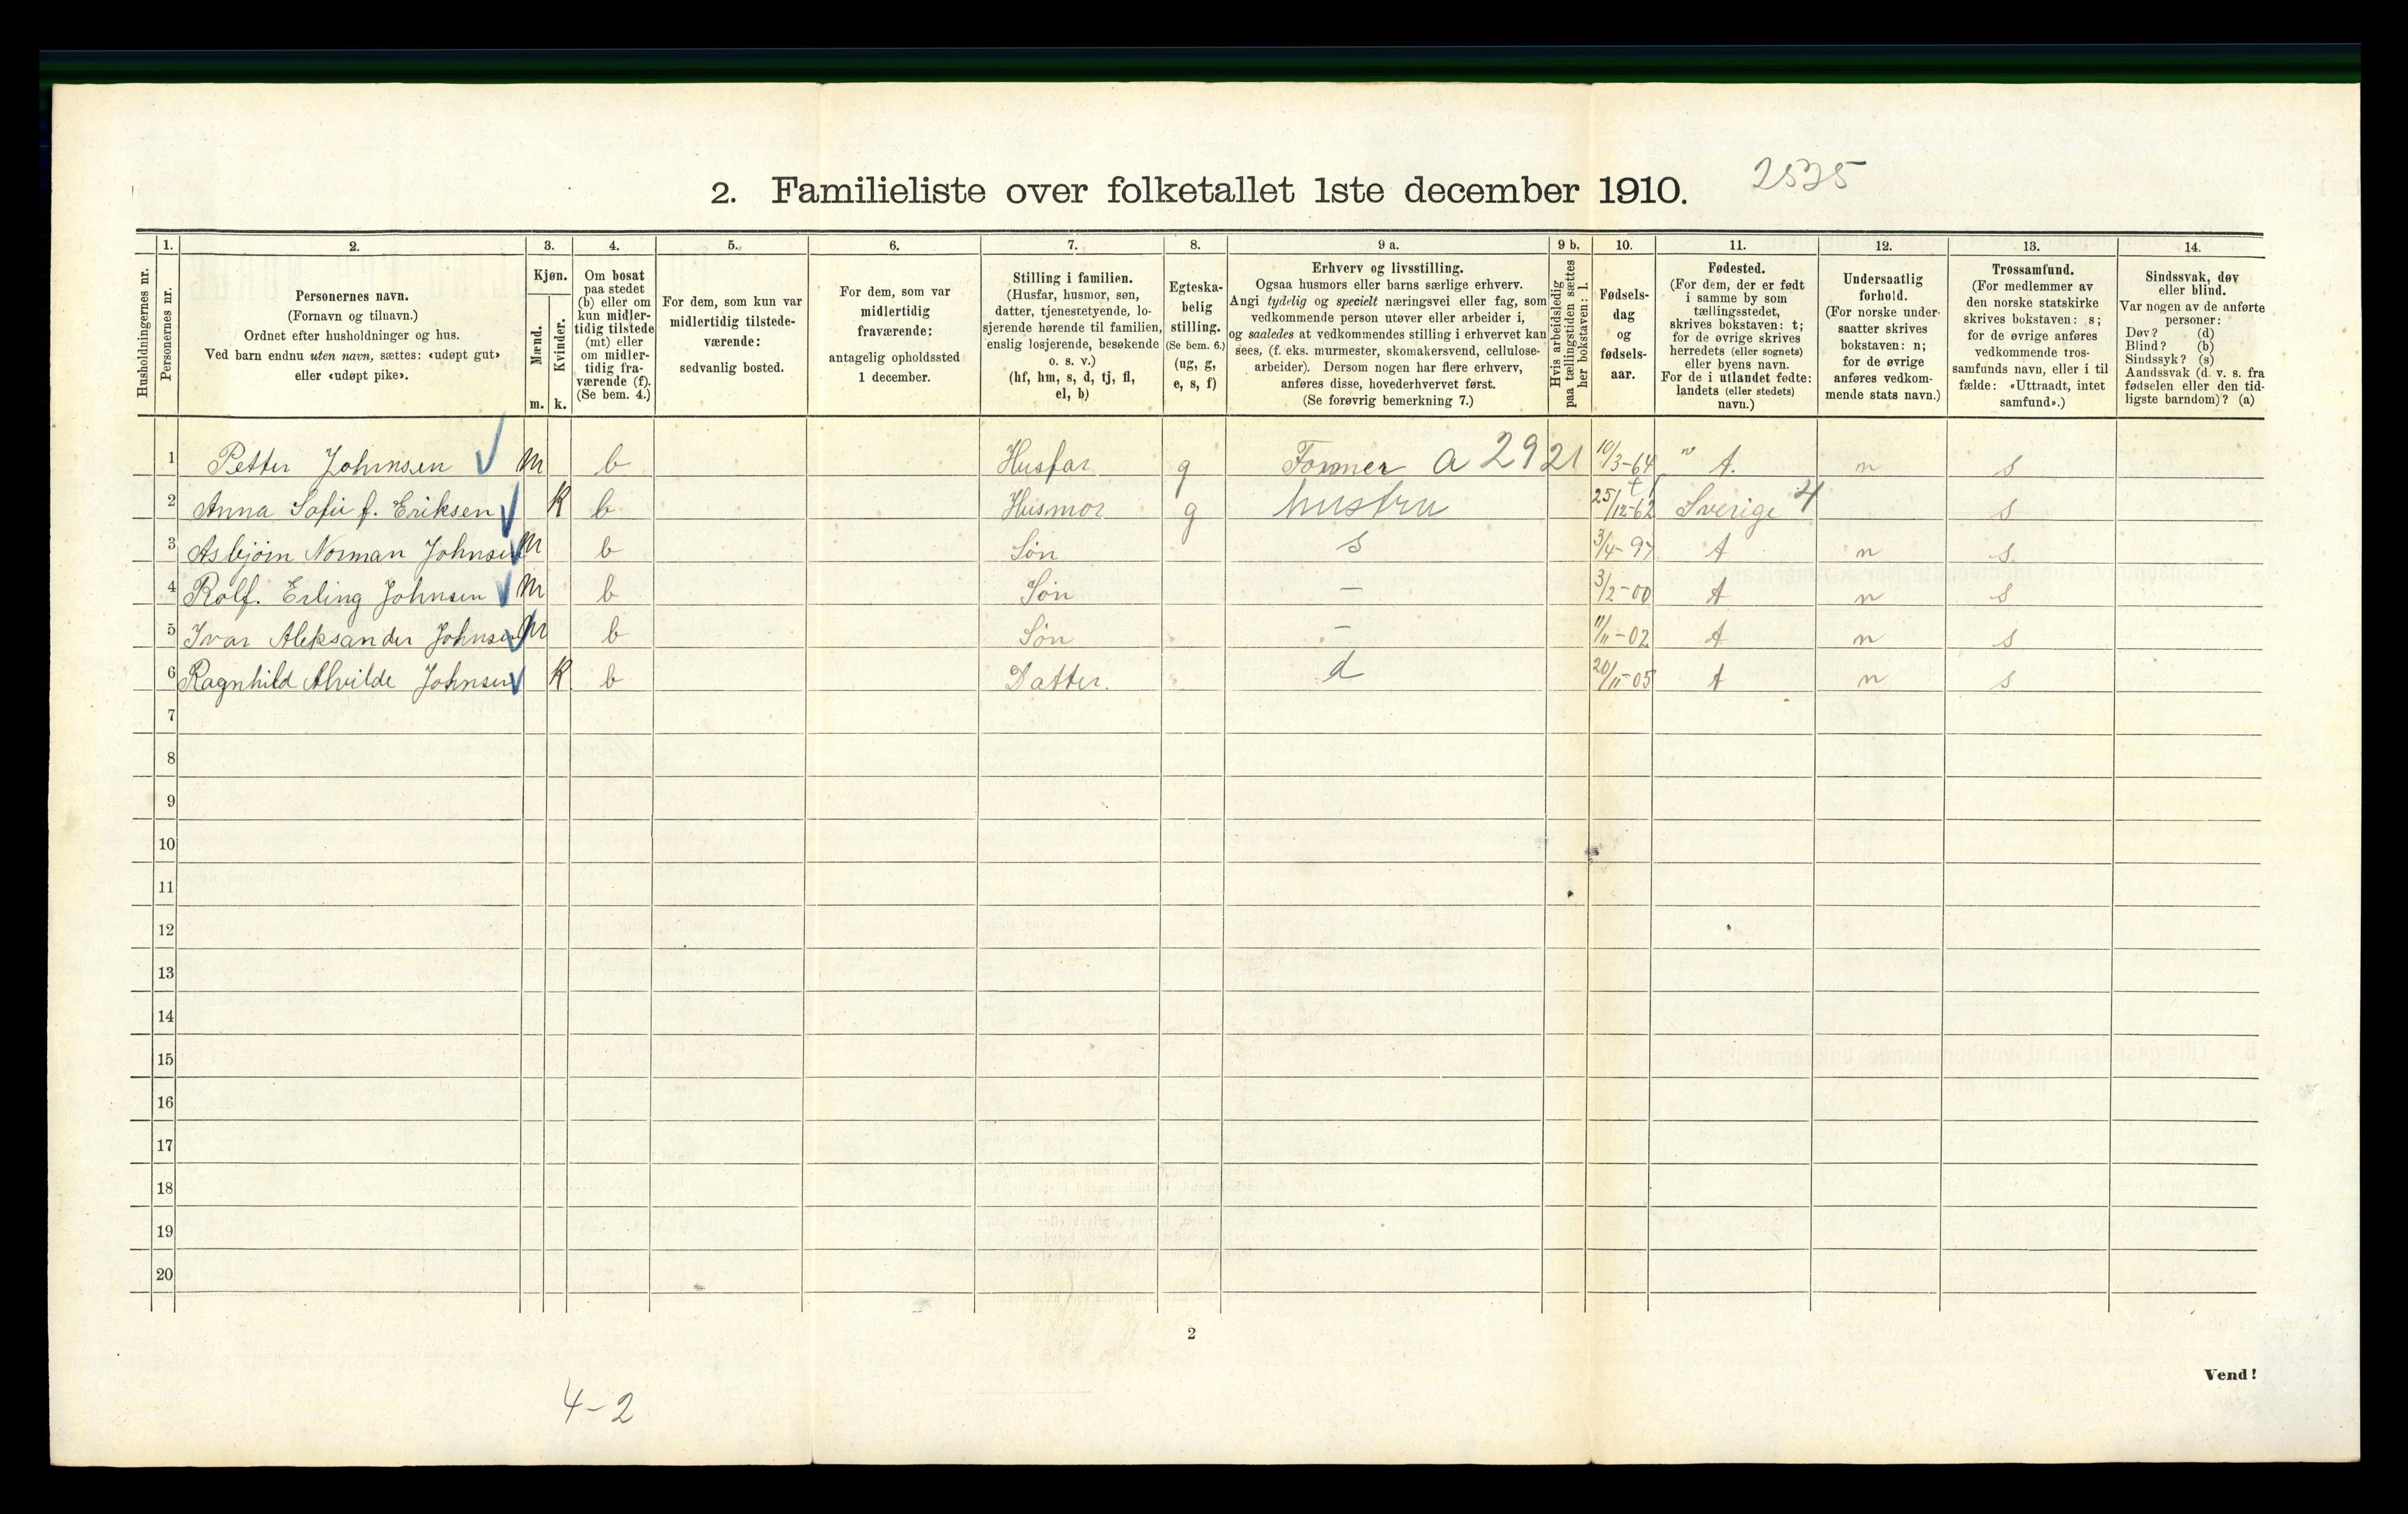 2. Familieliste over folketallet 1ste december 1910. 2525
Husholdningernes nr.
1. Personernes nr.
2. Personernes navn. (Fornavn og tilnavn.) Ordnet efter husholdninger og hus. Ved barn endnu uten navn, sættes: «udøpt gut» eller «udøpt pike».
3. Kjøn. Mænd. m. Kvinder. k.
4. Om bosat paa stedet (b) eller om kun midler-tidig tilstede (mt) eller om midler-tidig fra-værende (f). (Se bem. 4.)
5. For dem, som kun var midlertidig tilstede-værende: sedvanlig bosted.
6. For dem, som var midlertidig fraværende: antagelig opholdssted 1 december.
7. Stilling i familien. (Husfar, husmor, søn, datter, tjenestetyende, lo-sjerende hørende til familien, enslig losjerende, besøkende o. s. v.) (hf, hm, s, d, tj, fl, el, b)
8. Egteska-belig stilling. (Se bem. 6.) (ug, g, e, s, f)
9 a. Erhverv og livsstilling. Ogsaa husmors eller barns særlige erhverv. Angi tydelig og specielt næringsvei eller fag, som vedkommende person utøver eller arbeider i, og saaledes at vedkommendes stilling i erhvervet kan sees, (f. eks. murmester, skomakersvend, cellulose-arbeider). Dersom nogen har flere erhverv, anføres disse, hovederhvervet først. (Se forøvrig bemerkning 7.)
9 b. Hvis arbeidsledig paa tællingstiden sættes her bokstaven: l.
10. Fødsels-dag og fødsels-aar.
11. Fødested. (For dem, der er født i samme by som tællingsstedet, skrives bokstaven: t; for de øvrige skrives herredets (eller sognets) eller byens navn. For de i utlandet fødte: landets (eller stedets) navn.)
12. Undersaatlig forhold. (For norske under-saatter skrives bokstaven: n; for de øvrige anføres vedkom-mende stats navn.)
13. Trossamfund. (For medlemmer av den norske statskirke skrives bokstaven: s; for de øvrige anføres vedkommende tros-samfunds navn, eller i til fælde: «Uttraadt, intet samfund».)
14. Sindssvak, døv eller blind. Var nogen av de anførte personer: Døv? (d) Blind? (b) Sindssyk? (s) Aandssvak (d. v. s. fra fødselen eller den tid-ligste barndom)? (a)
1 Petter Johnsen m b Husfar g Former a 2921 10/3-64 t. n s
2 Anna Sofie f. Eriksen K b Husmor g hustru 25/12-62 Sverige 4 t s
3 Asbjörn Norman Johnsen m b Sön s 3/4-97 t n s
4 Rolf. Erling Johnsen m b Sön – 3/2-00 t n s
5 Ivar Aleksander Johnsen m b Sön – 11/11-02 t n s
6 Ragnhild Alvilde Johnsen K b Datter. d 20/11-05 t n s
7
8
9
10
11
12
13
14
15
16
17
18
19
20
2
Vend!
4-2